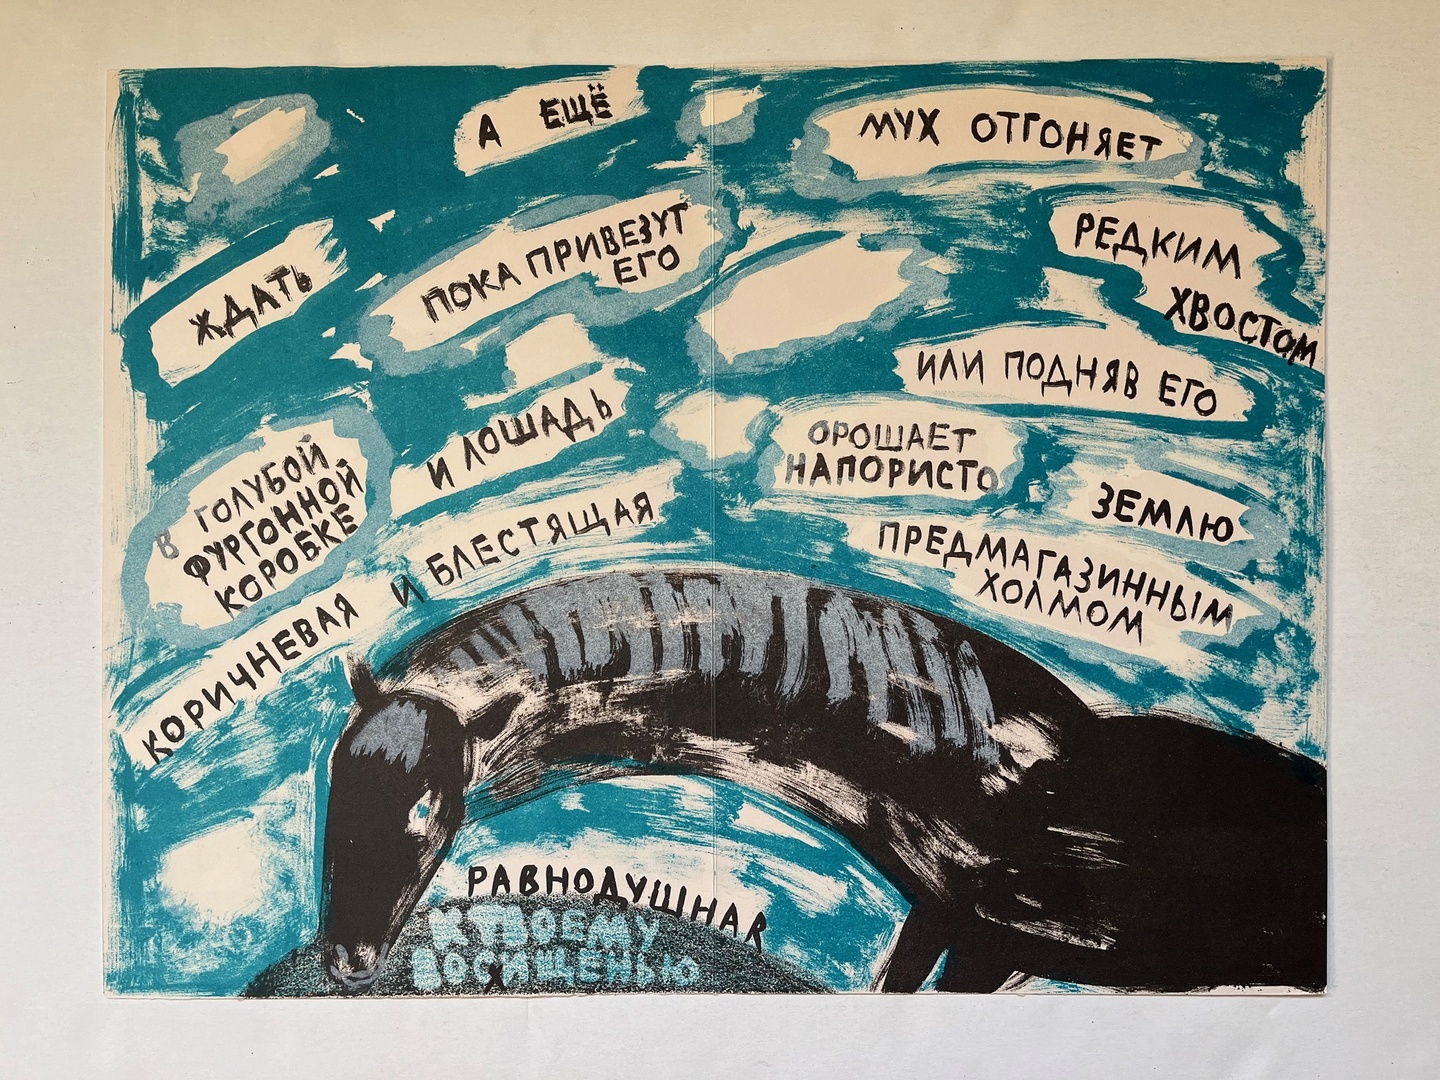 А ЕЩЁ
ЖДАТЬ
ПОКА ПРИВЕЗУТ
ЕГО
В ГОЛУБОЙ
ФУРГОННОЙ
КОРОБКЕ
И ЛОШАДЬ
КОРИЧНЕВАЯ
И БЛЕСТЯЩАЯ
РАВНОДУШНАЯ
К ТВОЕМУ
ВОСХИЩЕНЬЮ
МУХ ОТГОНЯЕТ
РЕДКИМ
ХВОСТОМ
ИЛИ ПОДНЯВ ЕГО
ОРОШАЕТ
НАПОРИСТО
ЗЕМЛЮ
ПРЕДМАГАЗИННЫМ
ХОЛМОМ